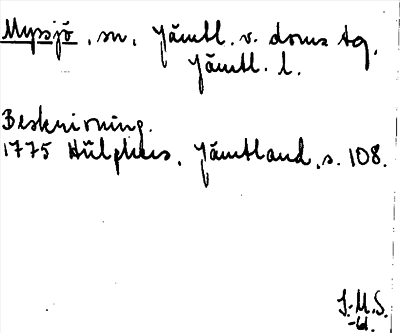 Myssjö, sn, Jämtl. v. doms tg,
Jämtl. l.
Beskrivning.
1775 Hülphers, Jämtland, s. 108.